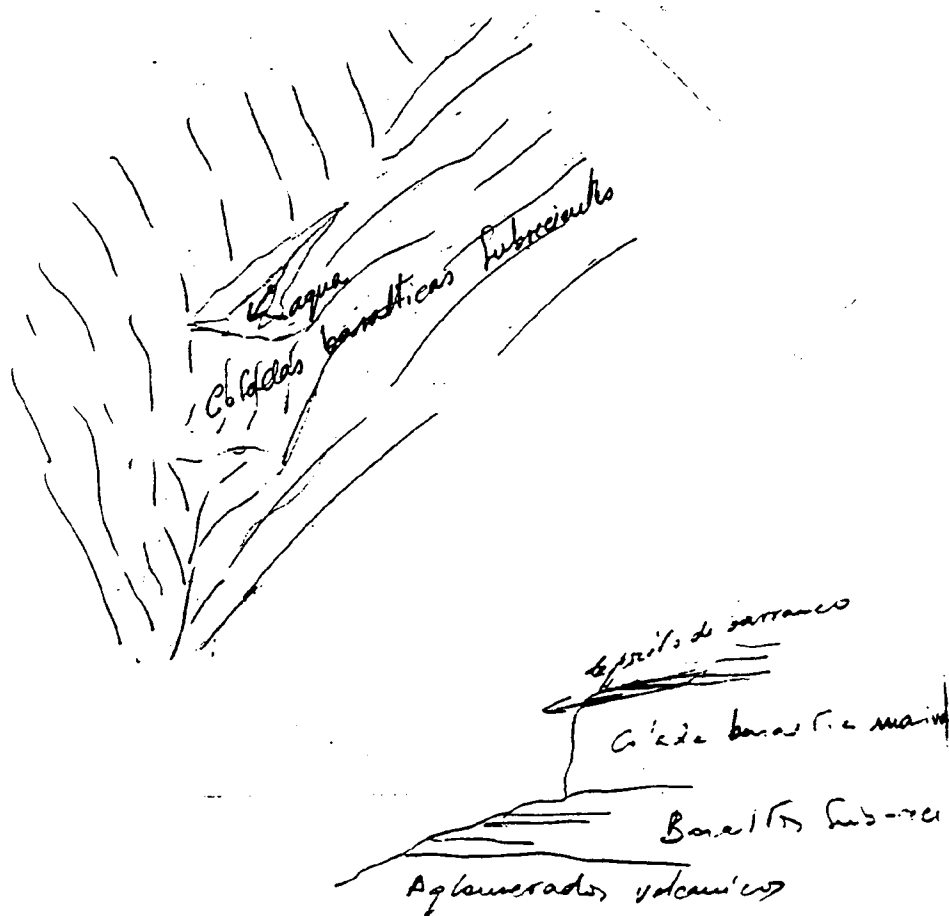 agua
Coladas basálticas Subrecientes
depósito de barranco
Colada basáltica masiv
Basaltos Sub-rec
Aglomerados volcánicos